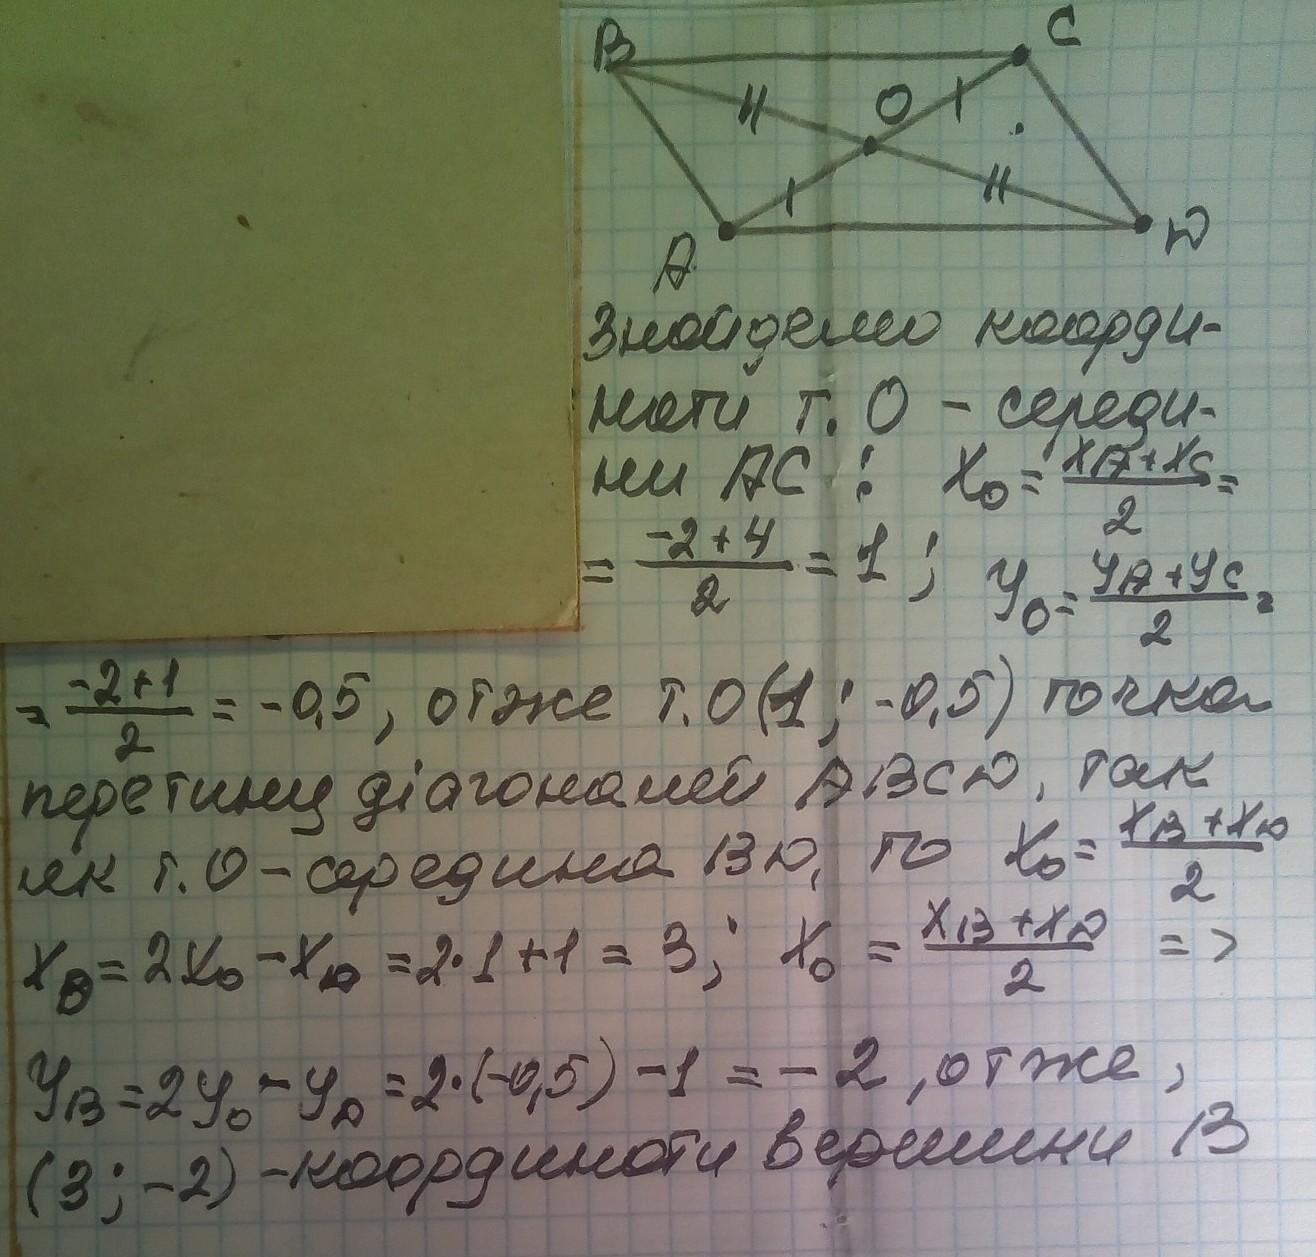 B
C
O
A
D
Знайдемо коорди-
нати т. О - середи-
ни АС: X₀ = (X_A + X_C)/2 =
= (-2+4)/2 = 1; y₀ = (y_A + y_C)/2 =
= (-2+1)/2 = -0,5, отже т.О(1; -0,5) точка
перетину діагоналей ABCD, так
як т.О - середина BD, то X₀ = (X_B + X_D)/2
X_B = 2X₀ - X_D = 2·1+1 = 3; X₀ = (X_B + X_D)/2 =>
y_B = 2y₀ - y_D = 2·(-0,5) -1 = -2, отже,
(3; -2) - координати вершини B